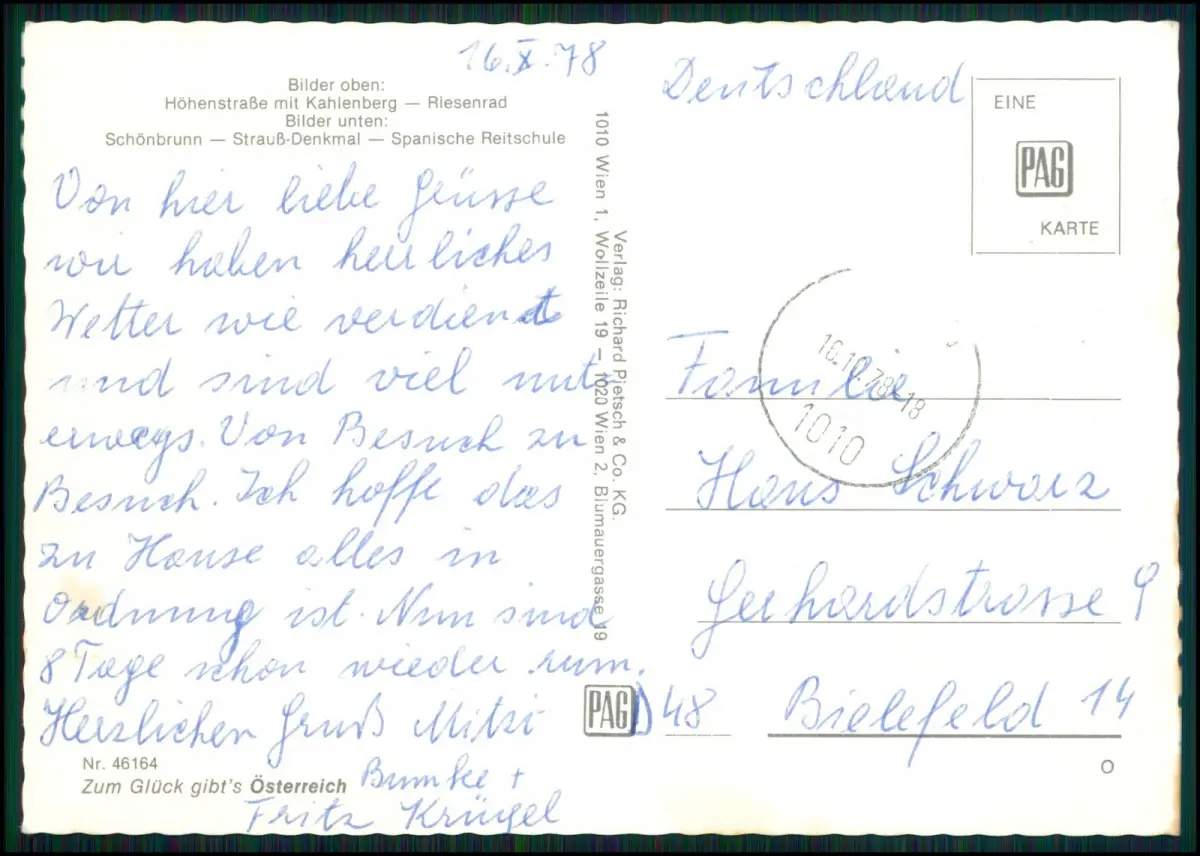 16.X.78
Bilder oben:
Höhenstraße mit Kahlenberg — Riesenrad
Bilder unten:
Schönbrunn — Strauß-Denkmal — Spanische Reitschule
Von hier liebe Grüsse
wir haben herrliches
Wetter wie verdient
und sind viel unt
erwegs. Von Besuch zu
Besuch. Ich hoffe das
zu Hause alles in
Ordnung ist. Nun sind
8 Tage schon wieder rum.
Herzlichen Gruß Mitzi
Bumke +
Fritz Krügel
Nr. 46164
Zum Glück gibt's Österreich
Verlag: Richard Pietsch & Co. KG.
1010 Wien 1, Wollzeile 19 – 1020 Wien 2, Blumauergasse 19
PAG
Deutschland
EINE
PAG
KARTE
16.10.78-18
1010
Familie
Hans Schwarz
Gerhardstrasse 9
D 48 Bielefeld 14
O